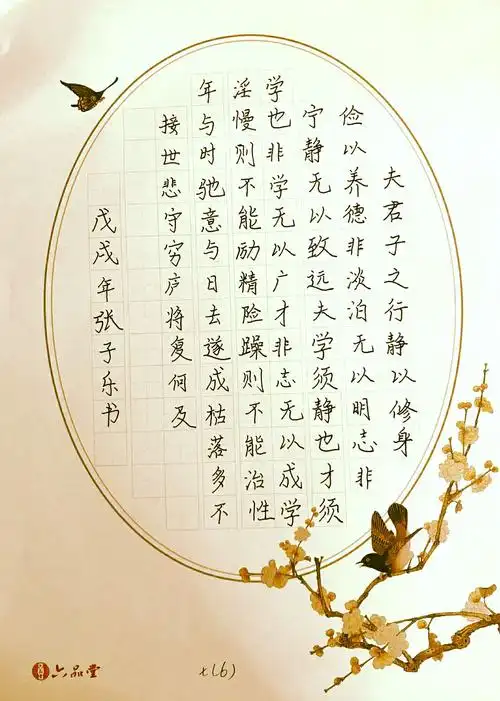 夫君子之行静以修身
俭以养德非淡泊无以明志非
宁静无以致远夫学须静也才须
学也非学无以广才非志无以成学
淫慢则不能励精险躁则不能治性
年与时驰意与日去遂成枯落多不
接世悲守穷庐将复何及
戊戌年张子乐书
六品堂
七(6)